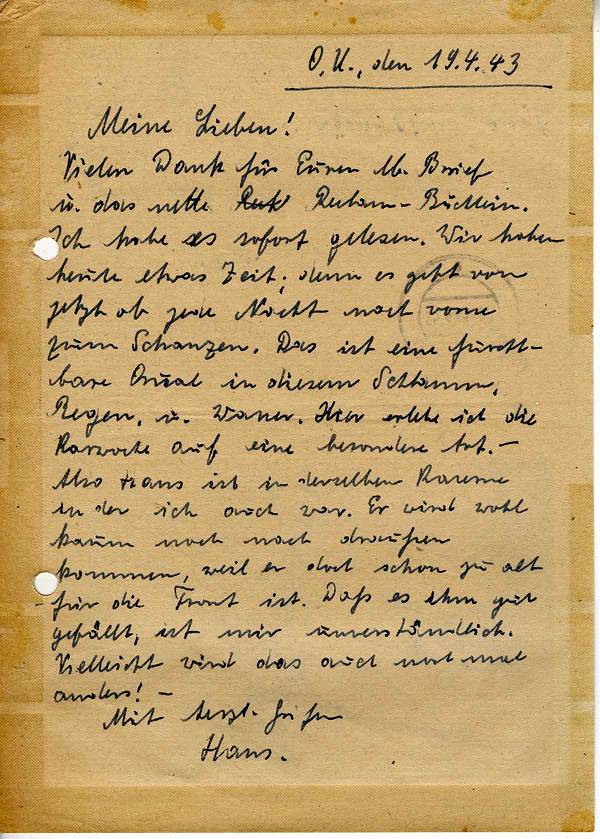 O.U., den 19.4.43
Meine Lieben!
Vielen Dank für Euren lb. Brief
u. das nette Reclam-Büchlein.
Ich habe es sofort gelesen. Wir haben
heute etwas Zeit, denn es geht von
jetzt ab jede Nacht nach vorne
zum Schanzen. Das ist eine furcht-
bare Qual in diesem Schlamm,
Regen, u. Wasser. Hier erlebe ich die
Karwoche auf eine besondere Art. –
Also Hans ist in derselben Kaserne
in der ich auch war. Er wird wohl
kaum noch nach draußen
kommen, weil er doch schon zu alt
für die Front ist. Daß es ihm gut
gefällt, ist mir unverständlich.
Vielleicht wird das auch noch mal
anders! –
Mit herzl. Grüßen
Hans.